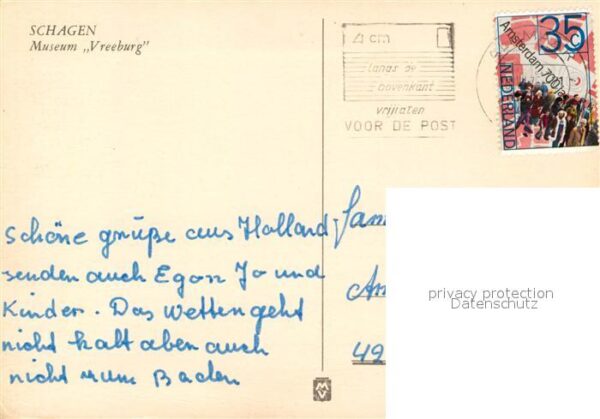 SCHAGEN
Museum „Vreeburg"
4 cm
langs de
bovenkant
vrijlaten
VOOR DE POST
35 c
Amsterdam 700 ja
NEDERLAND
Schöne grüße aus Holland
senden auch Egon Jo und
Kinder. Das Wetten geht
nicht kalt aber auch
nicht zum Baden
Fam
Am
49
privacy protection
Datenschutz
MV